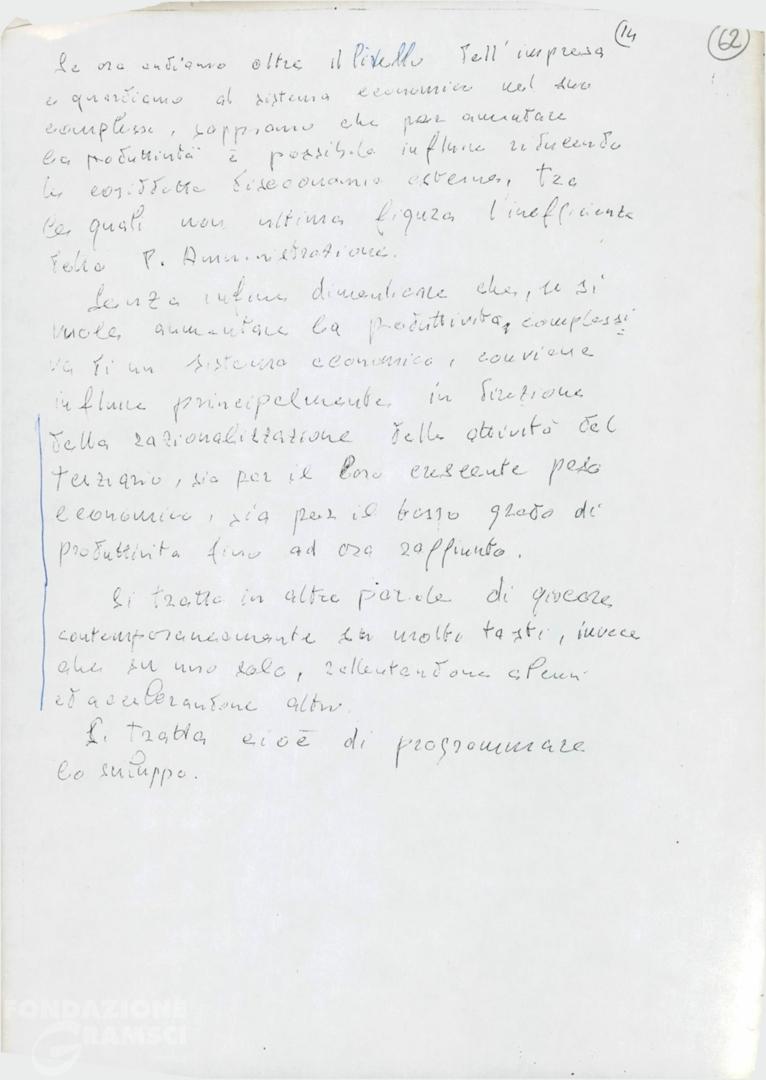 14
62
Se ora andiamo oltre il livello dell'impresa
e guardiamo al sistema economico nel suo
complesso, sappiamo che per aumentare
la produttività è possibile influire riducendo
le cosiddette diseconomie esterne, tra
le quali non ultima figura l'inefficienza
della P. Amministrazione.
Senza infine dimenticare che, se si
vuole aumentare la produttività complessi
va di un sistema economico, conviene
influire principalmente in direzione
della razionalizzazione delle attività del
terziario, sia per il loro crescente peso
economico, sia per il basso grado di
produttività fino ad ora raggiunto.
Si tratta in altre parole di giocare
contemporaneamente su molti tasti, invece
che su uno solo, rallentandone alcuni
ed accelerandone altri.
Si tratta cioè di programmare
lo sviluppo.
FONDAZIONE
GRAMSCI